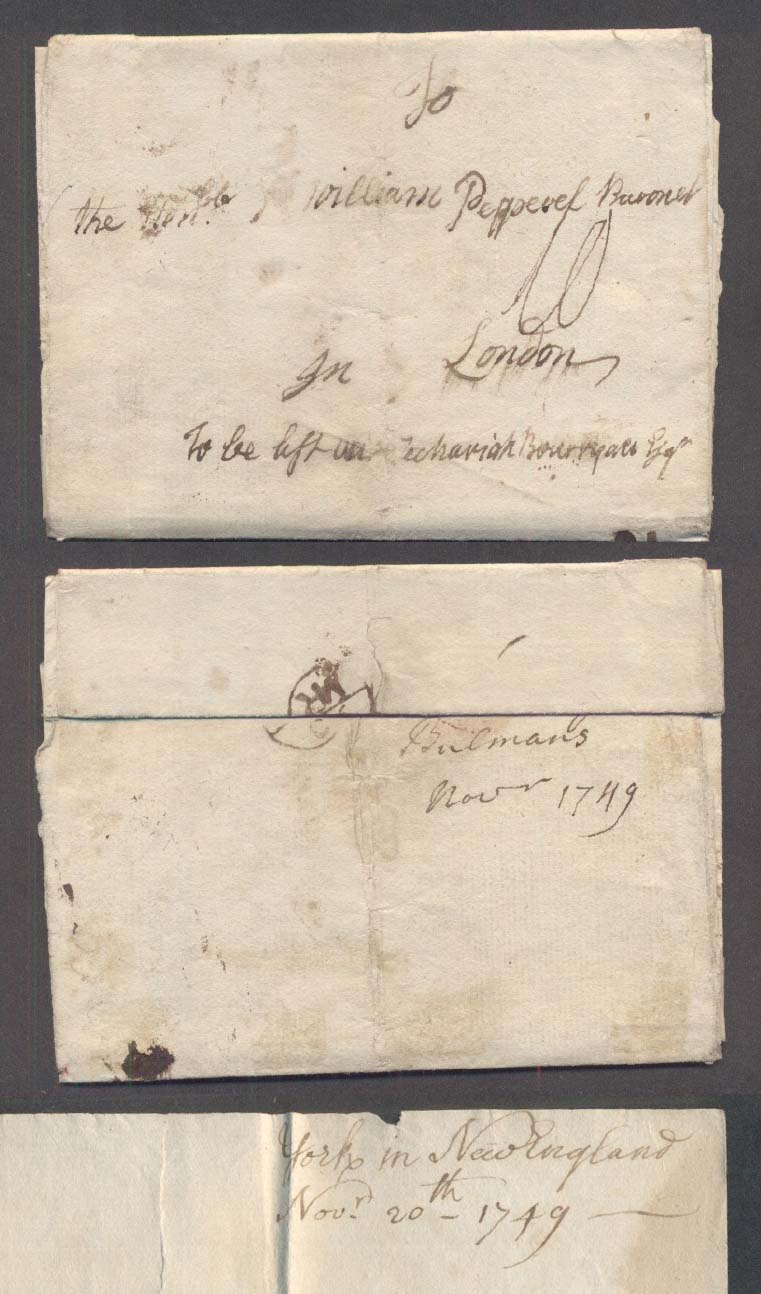 To
the Hon.ble William Pepperel Baronet
10
In London
To be left Zechariah Bourryau Esqr
Bulmans
Novr 1749
York in New England
Novr. 20th - 1749